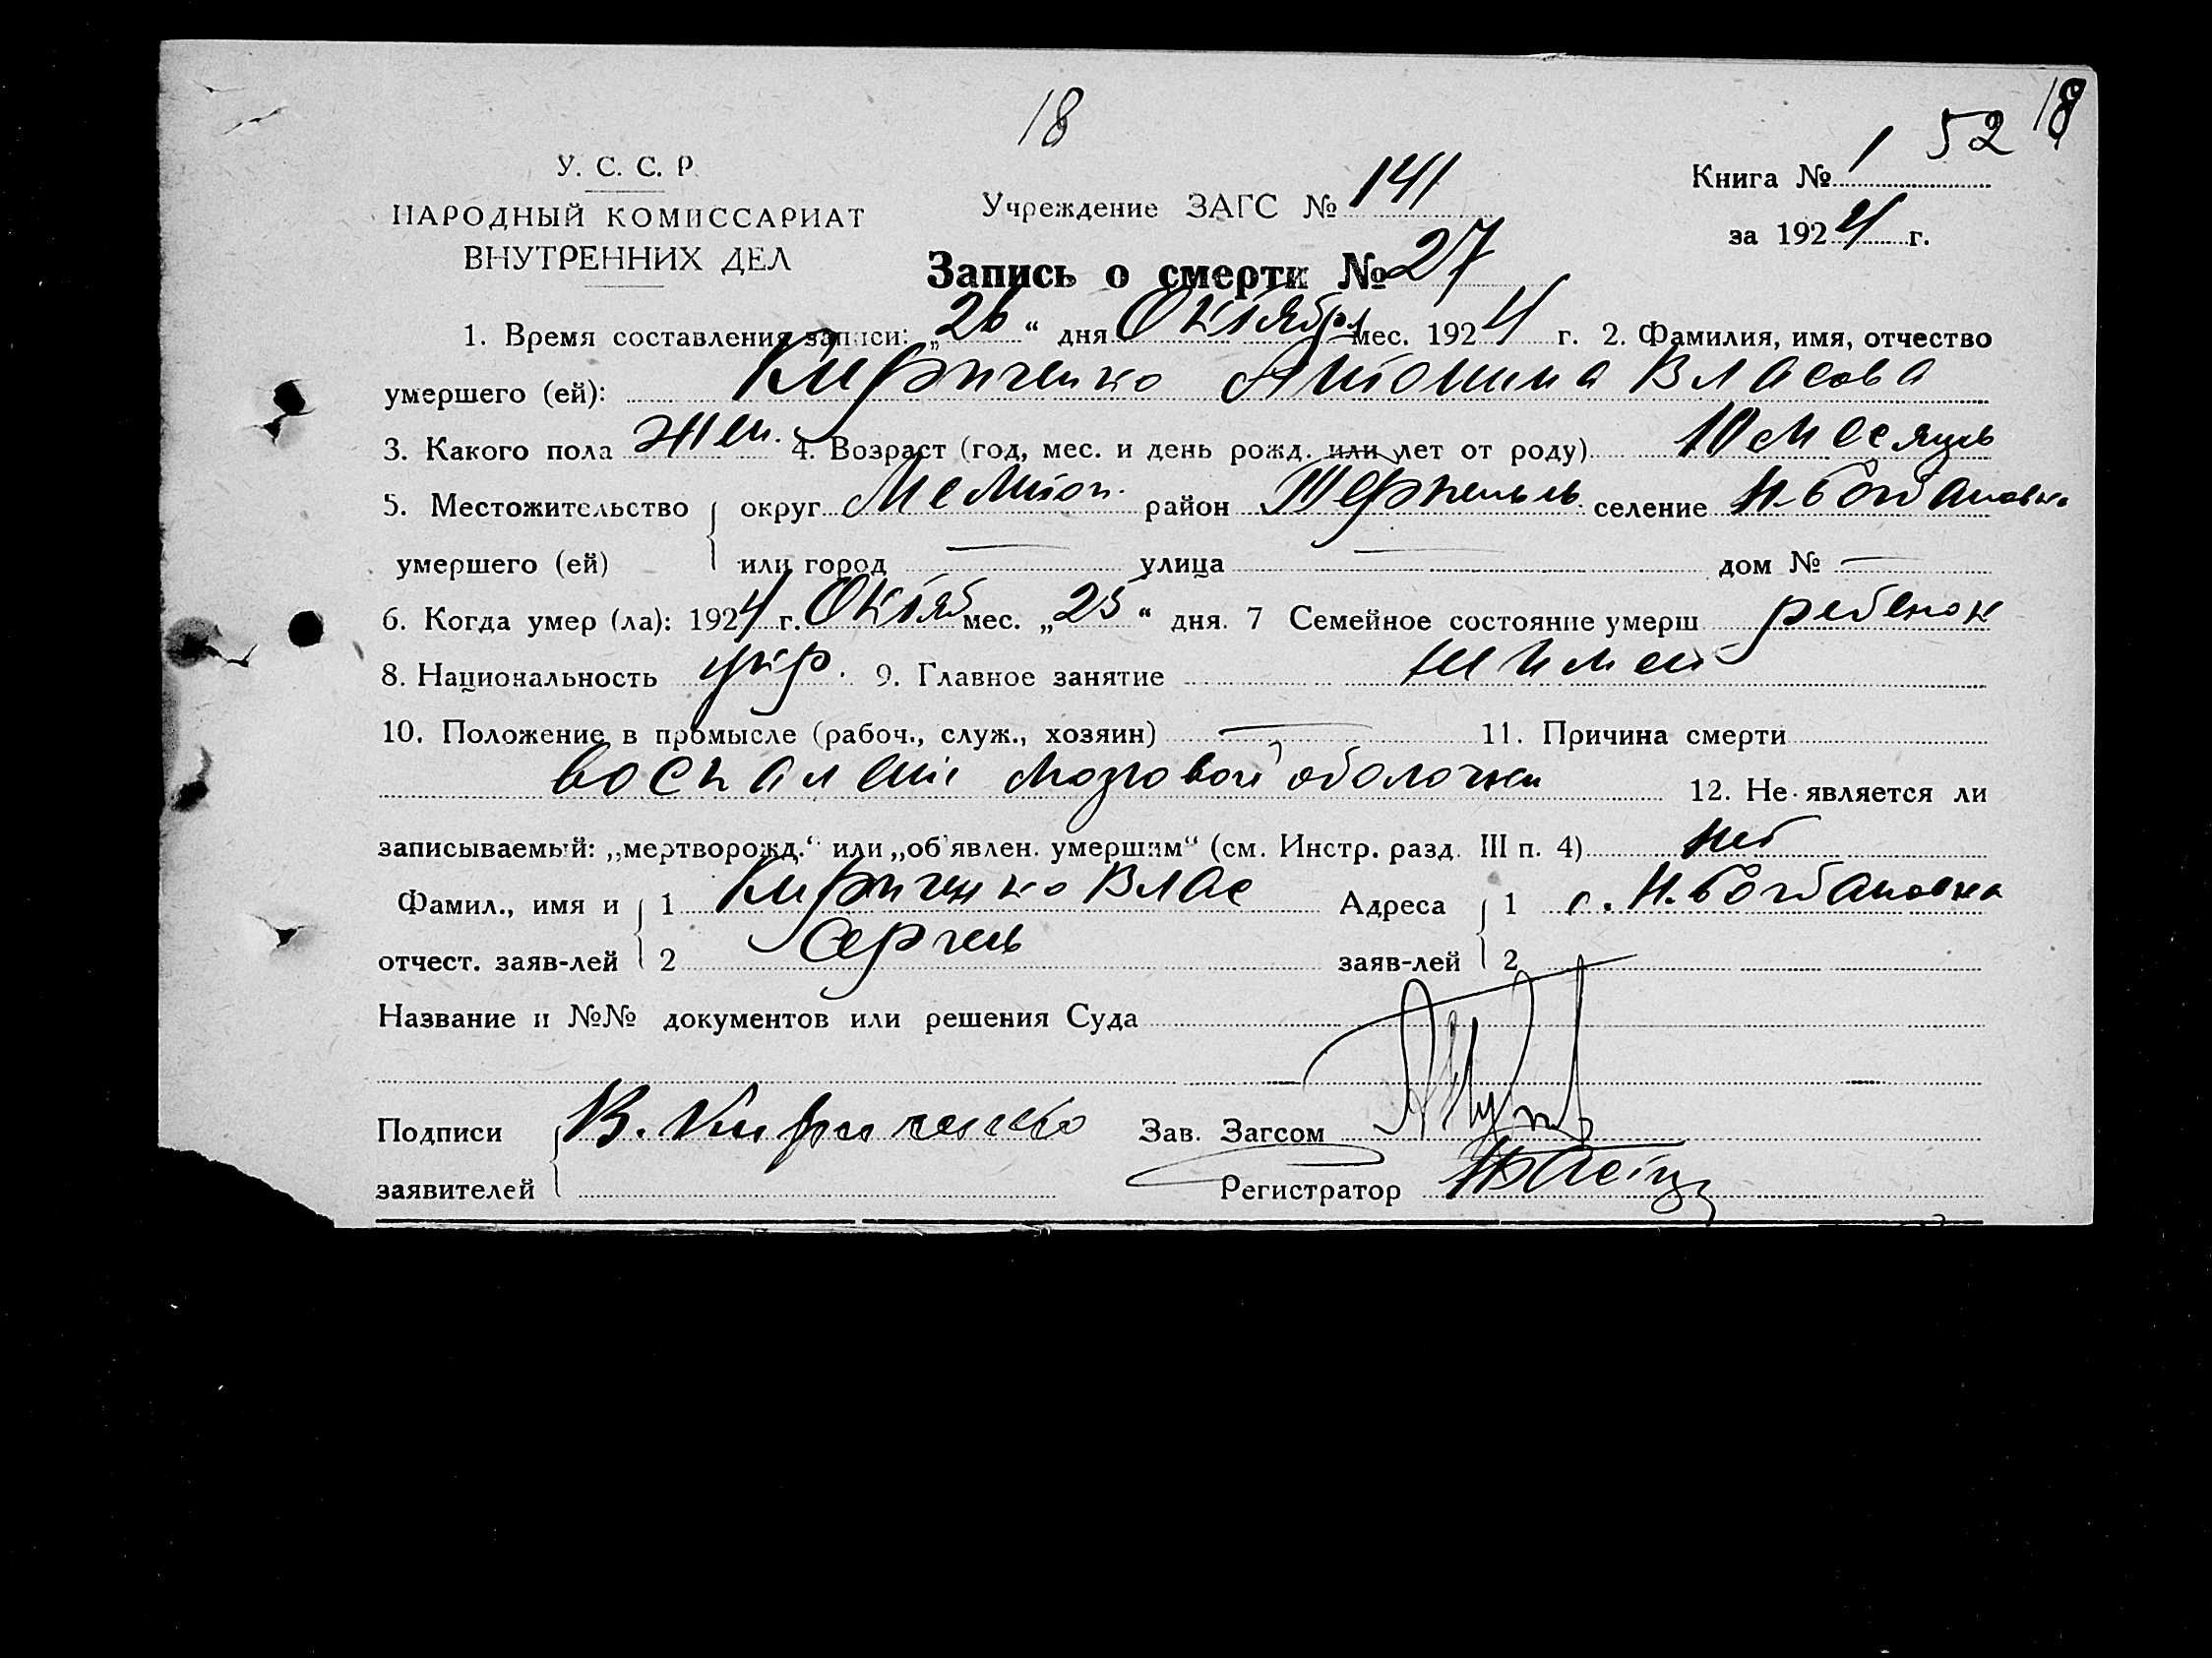 18
18
52
У. С. С. Р.
НАРОДНЫЙ КОМИССАРИАТ
ВНУТРЕННИХ ДЕЛ
Учреждение ЗАГС № 141
Книга № 1
за 1924 г.
Запись о смерти № 27
1. Время составления записи: „26“ дня Октября мес. 1924 г. 2. Фамилия, имя, отчество
умершего (ей): Кириченко Антонина Власова
3. Какого пола жен. 4. Возраст (год, мес. и день рожд. или лет от роду) 10 месяць
5. Местожительство округ Мелитоп. район Терпеньев. селение Н. Богдановка
умершего (ей) или город — улица — дом № —
6. Когда умер (ла): 1924 г. Октяб мес. „25“ дня. 7 Семейное состояние умерш ребенок
8. Национальность укр. 9. Главное занятие
10. Положение в промысле (рабоч., служ., хозяин) — 11. Причина смерти
воспаление мозговой оболочки 12. Не является ли
записываемый: „мертворожд.“ или „об'явлен. умершим“ (см. Инстр. разд. III п. 4) нет
Фамил., имя и 1 Кириченко Влас Адреса 1 с. Н. Богдановка
отчест. заяв-лей 2 Сергеев заяв-лей 2
Название и №№ документов или решения Суда
Подписи В. Кириченко Зав. Загсом
заявителей Регистратор